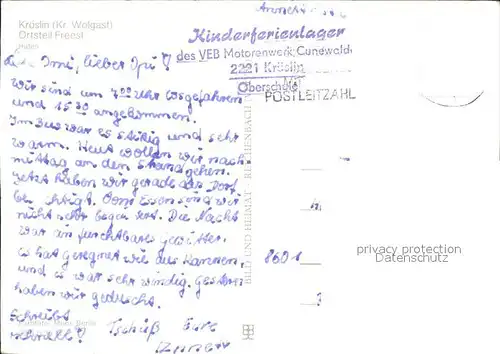 Kröslin (Kr. Wolgast)
Ortsteil Freest
Hafen
Kinderferienlager
des VEB Motorenwerk Cunewalde
2221 Kröslin
Oberschule
MIT
POSTLEITZAHL
Liebe Omi, lieber Opi!
Wir sind um 4 00 Uhr losgefahren
und 15 30 angekommen.
Im Bus war es stickig und sehr
warm. Heut wollen wir nach
mittag an den Strand gehen.
Jetzt haben wir gerade das Dorf
besichtigt. Vom Essen sind wir
nicht sehr begeistert. Die Nacht
war ein furchtbares Gewitter.
Es hat geregnet wie aus Kannen,
und es war sehr windig. Gestern
haben wir geduscht.
Schreibt
schnell!
Tschüß Eure
BILD UND HEIMAT REICHENBACH
8601
privacy protection
Datenschutz